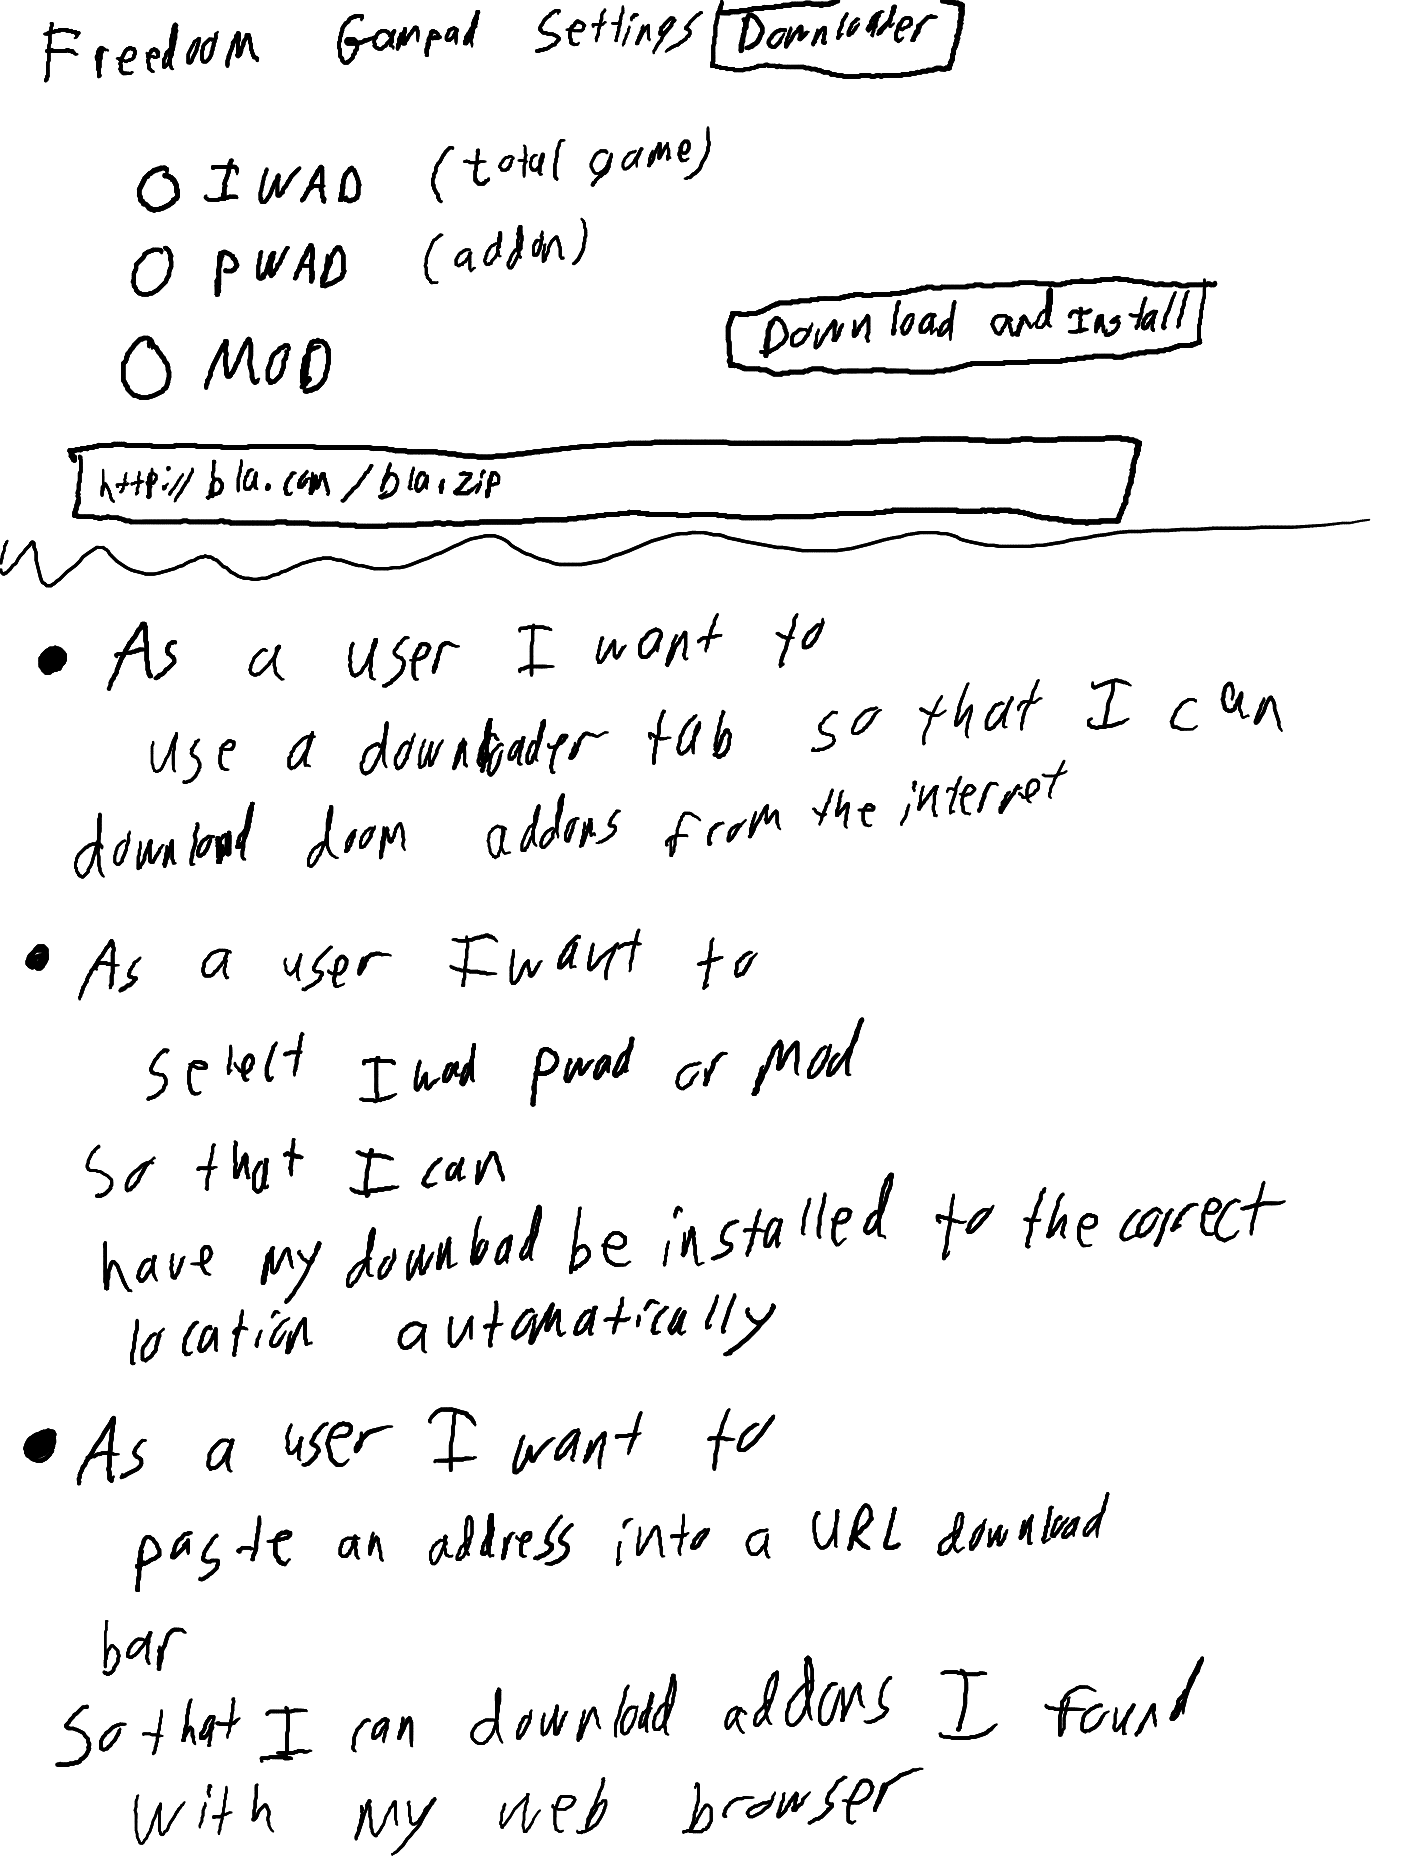 Freedoom Gampad Settings Downloader
IWAD (total game)
PWAD (addon)
Download and Install
MOD
http://bla.com/bla.zip
• As a user I want to
use a downloader tab so that I can
download doom addons from the internet
• As a user I want to
select Iwad pwad or Mod
So that I can
have my download be installed to the correct
location automatically
• As a user I want to
paste an address into a URL download
bar
So that I can download addons I found
with my web browser